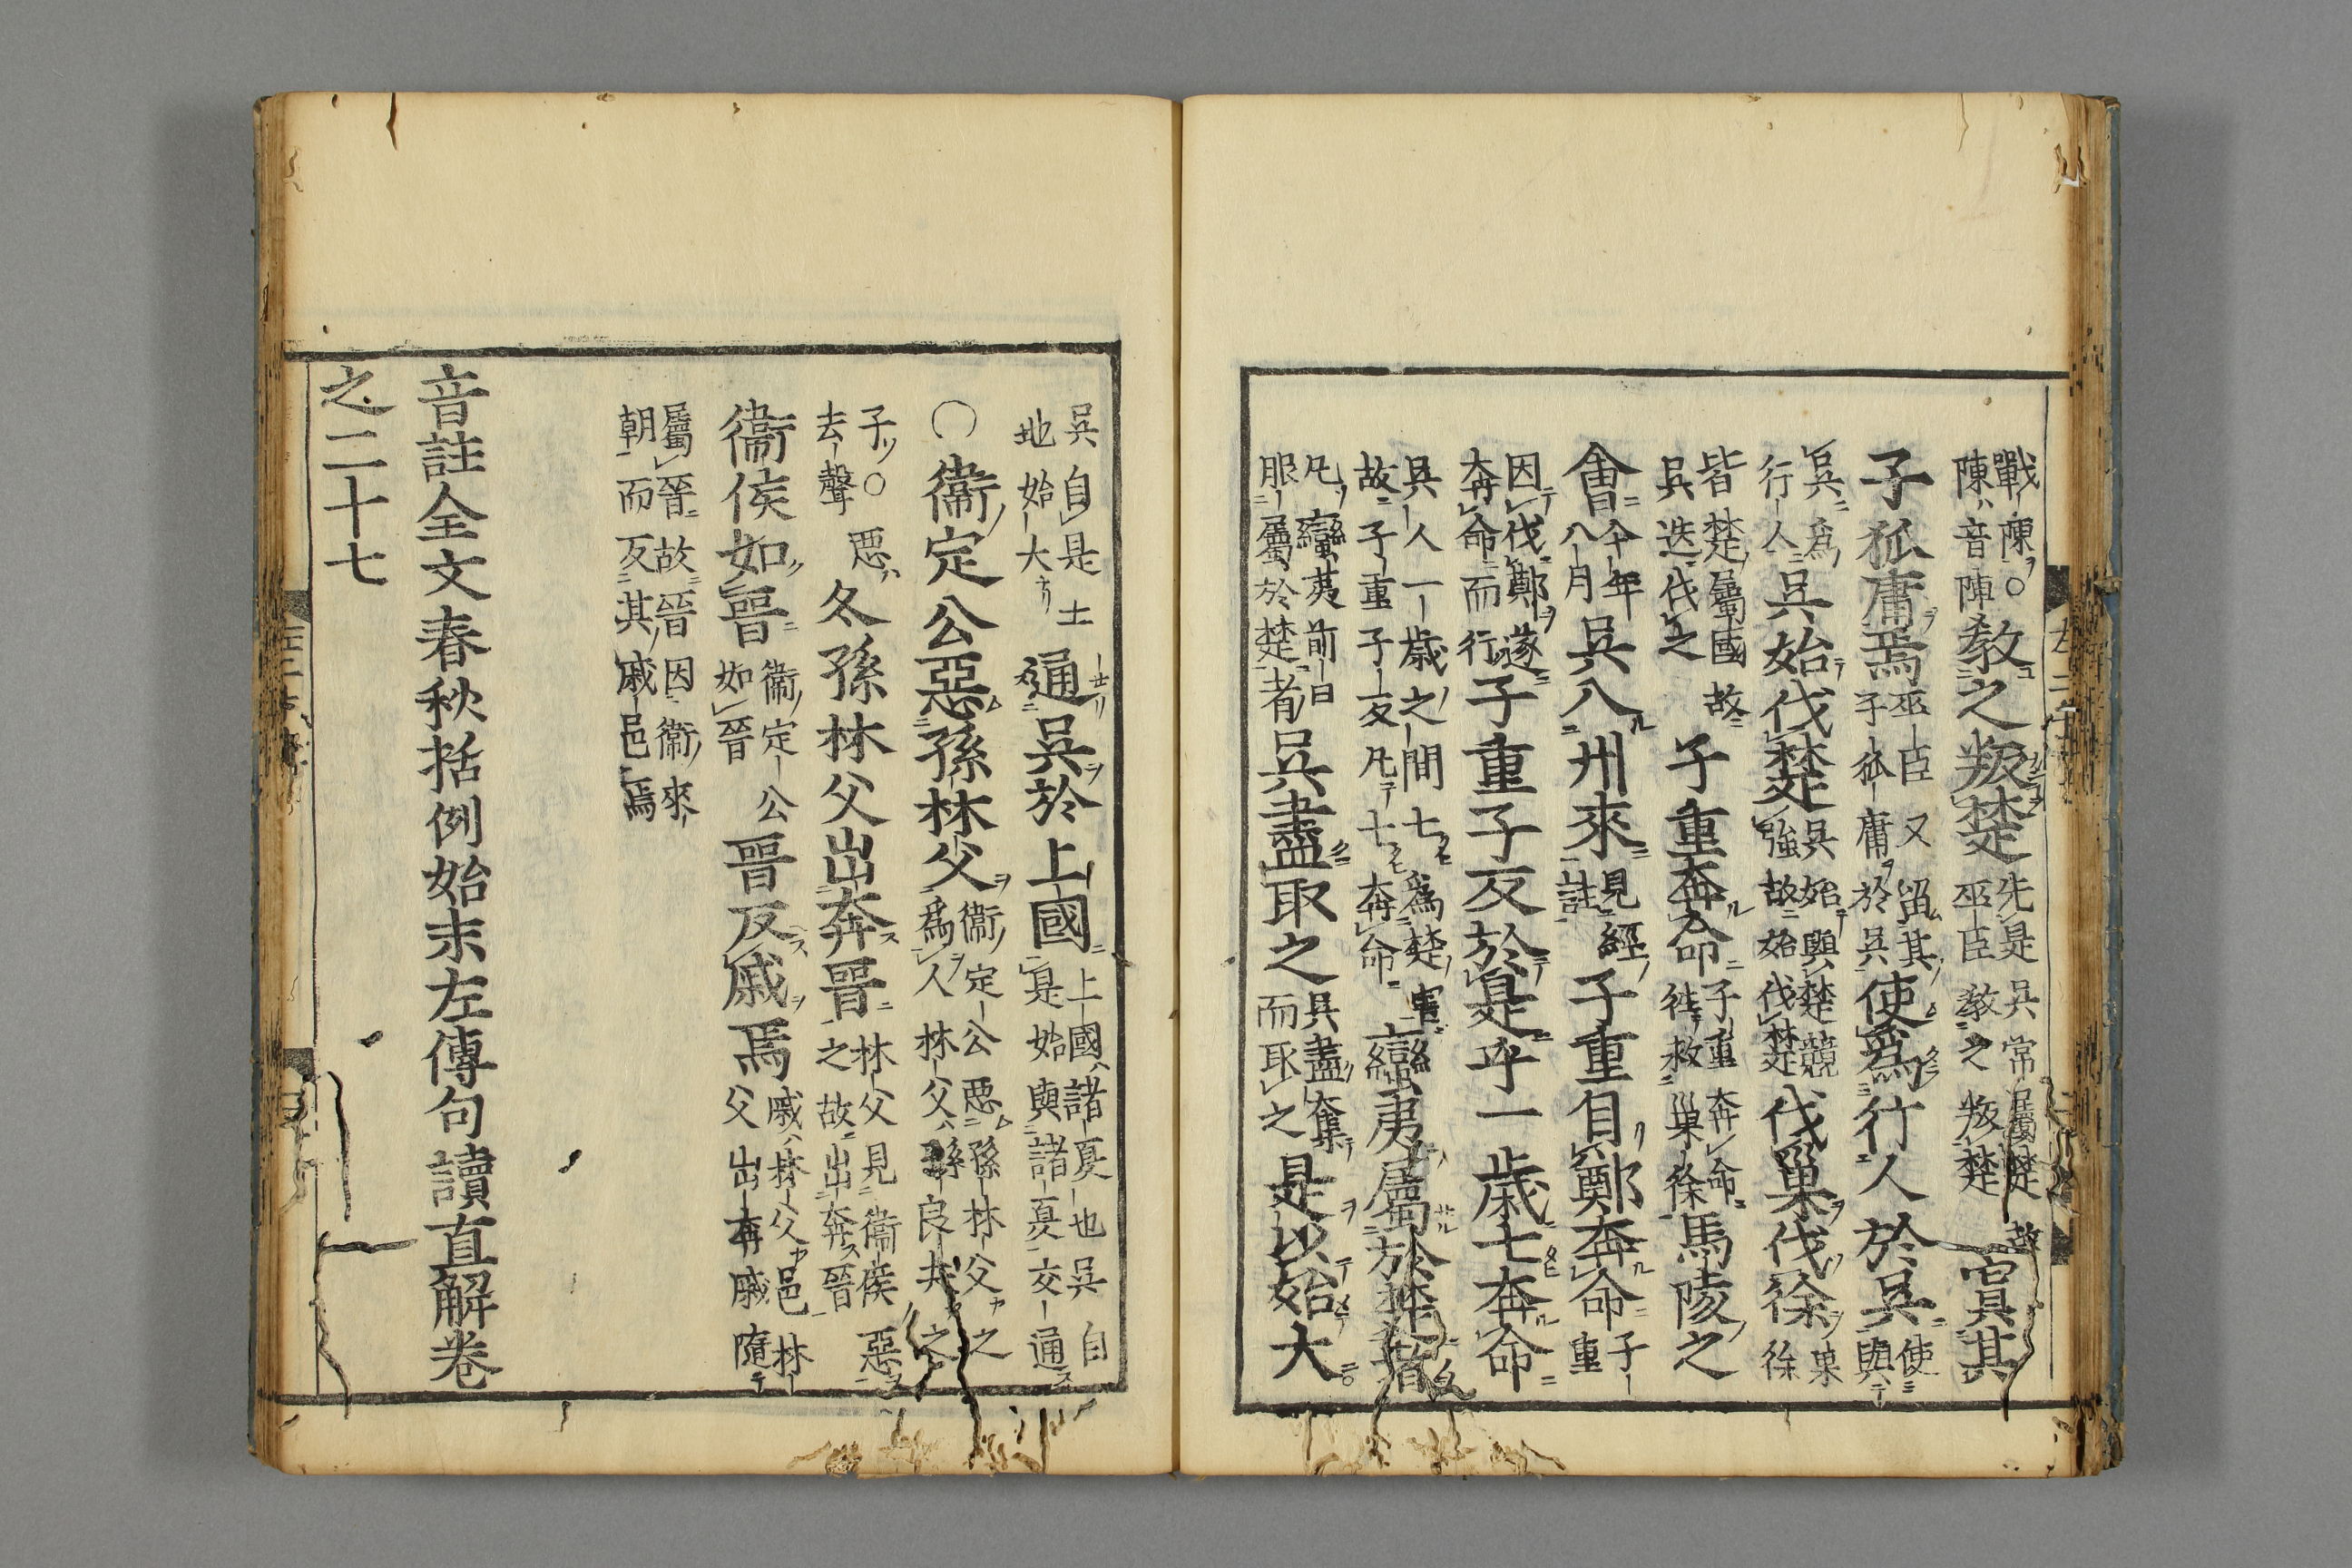 戰陳○陳音陣教之叛楚先是吳常屬楚故巫臣教之叛楚寘其
子狐庸焉巫臣又留其子狐庸於吳使爲行人於吳使與
吳爲行人吳始伐楚吳始與楚競強故始伐楚伐巢伐徐巢徐
皆楚屬國故吳迭伐之子重奔命子重奔命往救巢徐馬陵之
會今年八月吳入州來見經註子重自鄭奔命子重
因伐鄭遂奔命而行子重子反於是乎一歲七奔命
吳人一歲之間七爲楚害故子重子反凡七奔命蠻夷屬於楚者
凡蠻夷前日服屬於楚者吳盡取之吳盡奪而取之是以始大
吳自是土地始大通吳於上國上國諸夏也吳自是始與諸夏交通
○衞定公惡孫林父衞定公惡孫林父之爲人林父孫良夫之
子○惡去聲冬孫林父出奔晉林父見衞侯惡之故出奔晉
衞侯如晉衞定公如晉晉反戚焉戚林父邑林父出奔戚隨
屬晉故晉因衞來朝而反其戚邑焉
音註全文春秋括例始末左傳句讀直解卷
之二十七